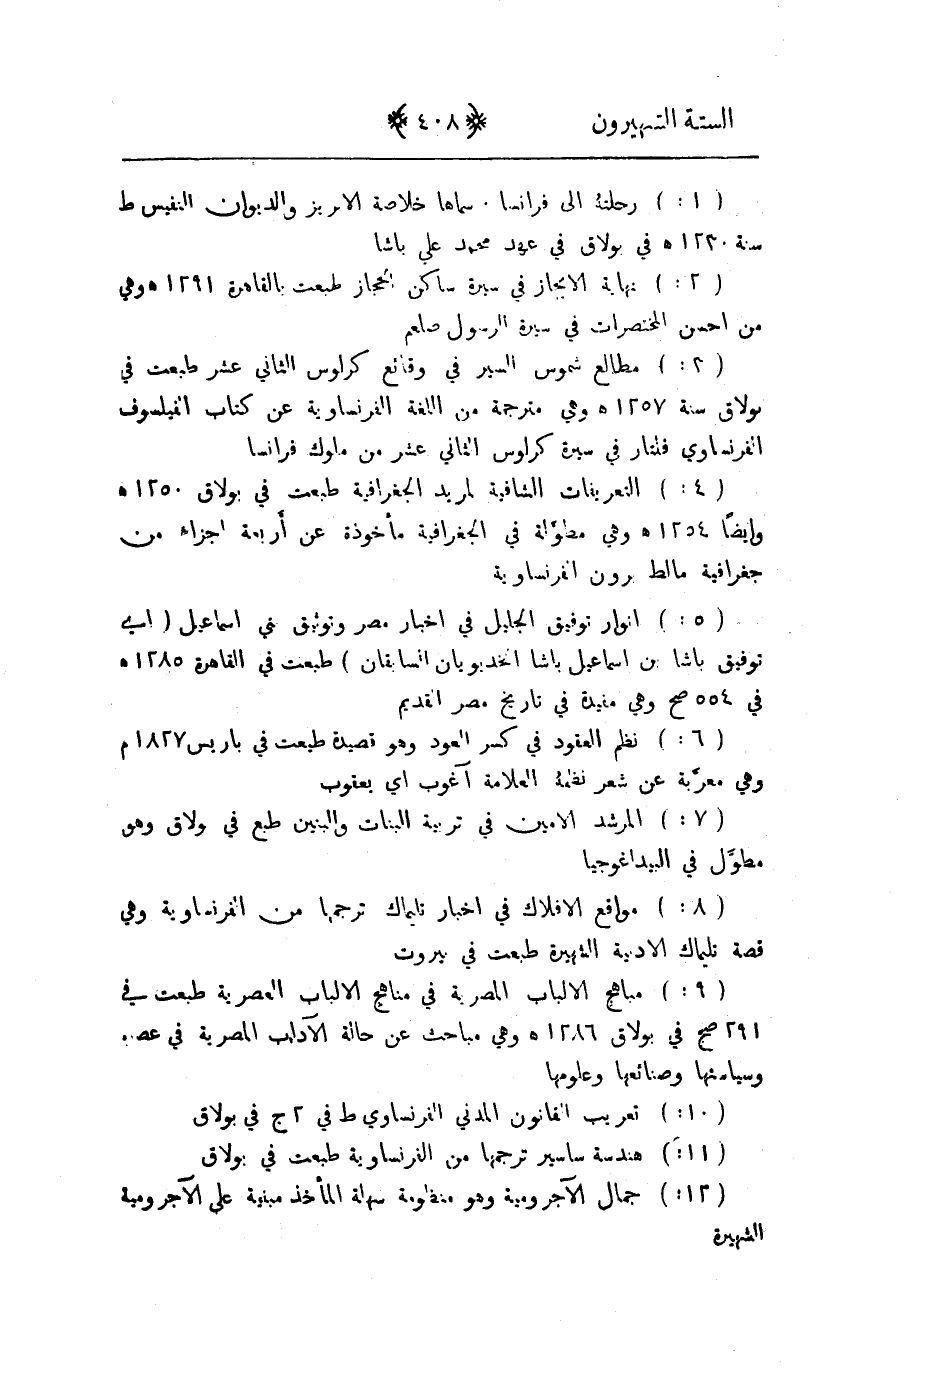 الستة الشهيرون ﴿ ٤٠٨ ﴾
( ١ : ) رحلتهُ الى فرانسا . سماها خلاصة الابريز والديوان النفيس ط
سنة ١٢٣٠ ه في بولاق في عهد محمد علي باشا
( ٢ : ) نهاية الايجاز في سيرة ساكن الحجاز طبعت بالقاهرة ١٢٩١ ه وهي
من احسن المختصرات في سيرة الرسول صلعم
( ٣ : ) مطالع شموس السير في وقائع كرلوس الثاني عشر طبعت في
بولاق سنة ١٢٥٧ ه وهي مترجمة من اللغة الفرنساوية عن كتاب الفيلسوف
الفرنساوي فلتار في سيرة كرلوس الثاني عشر من ملوك فرانسا
( ٤ : ) التعريفات الشافية لمريد الجغرافية طبعت في بولاق ١٢٥٠ ه
وايضًا ١٢٥٤ ه وهي مطوَّلة في الجغرافية مأخوذة عن أربعة اجزاء من
جغرافية مالط برون الفرنساوية
( ٥ : ) انوار توفيق الجليل في اخبار مصر وتوثيق بني اسماعيل ( اي
توفيق باشا بن اسماعيل باشا الخديويان السابقان ) طبعت في القاهرة ١٢٨٥ ه
في ٥٥٤ صح وهي مفيدة في تاريخ مصر القديم
( ٦ : ) نظم العقود في كسر العود وهو قصيدة طبعت في باريس ١٨٢٧ م
وهي معرَّبة عن شعر نظمهُ العلامة آغوب اي يعقوب
( ٧ : ) المرشد الامين في تربية البنات والبنين طبع في بولاق وهو
مطوَّل في البيداغوجيا
( ٨ : ) مواقع الافلاك في اخبار تليماك ترجمها من الفرنساوية وهي
قصة تليماك الادبية الشهيرة طبعت في بيروت
( ٩ : ) مباهج الالباب المصرية في مناهج الالباب العصرية طبعت في
٢٩١ صح في بولاق ١٢٨٦ ه وهي مباحث عن حالة الآداب المصرية في عصره
وسياستها وصنائعها وعلومها
( ١٠: ) تعريب القانون المدني الفرنساوي ط في ٢ ج في بولاق
( ١١: ) هندسة ساسير ترجمها من الفرنساوية طبعت في بولاق
( ١٢: ) جمال الآجرومية وهو منظومة سهلة المأخذ مبنية على الآجرومية
الشهيرة